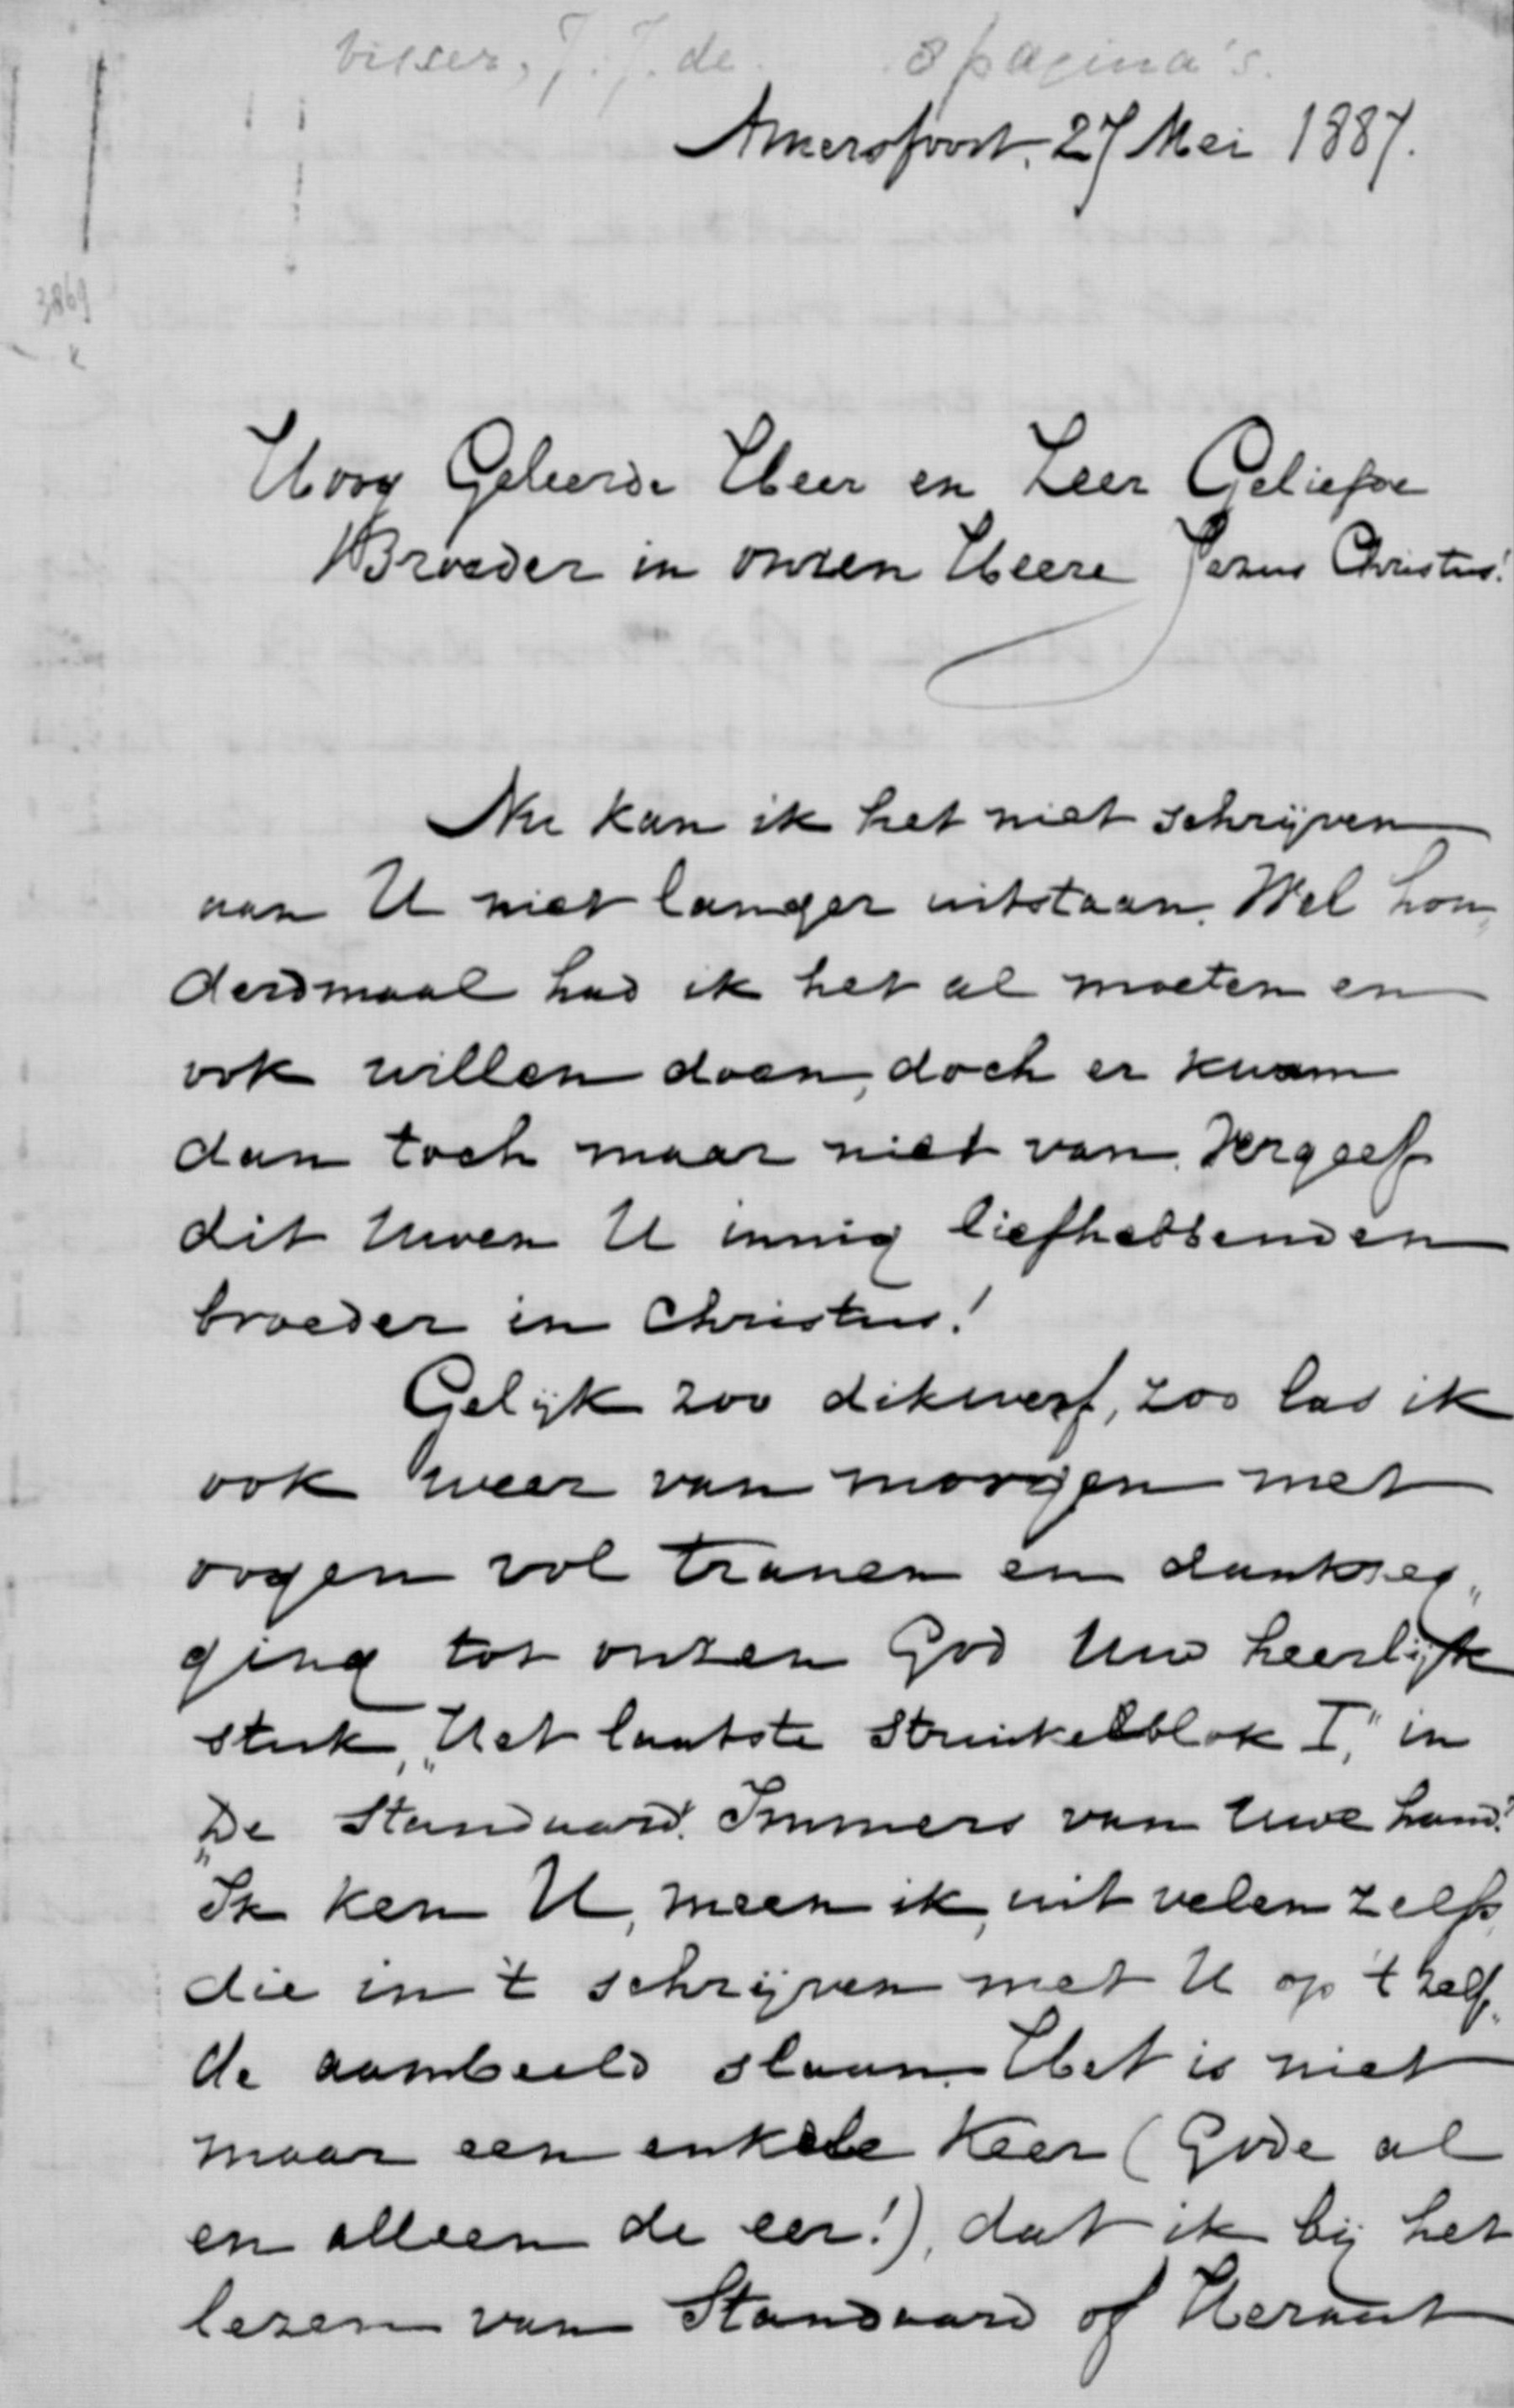 Visser, J. J. de. 8 pagina's.
Amersfoort, 27 Mei 1887.
3869
Hoog Geleerde Heer en Zeer Geliefde
Broeder in onzen Heere Jezus Christus!
Nu kan ik het niet schrijven
aan U niet langer uitstaan. Wel hon„
derdmaal had ik het al moeten en
ook willen doen, doch er kwam
dan toch maar niet van. Vergeef
dit Uwen U innig liefhebbenden
broeder in Christus!
Gelijk zoo dikwerf, zoo las ik
ook weer van morgen met
oogen vol tranen en dankzeg„
ging tot onzen God Uw heerlijk
stuk, „Het laatste Struikelblok I," in
„De Standaard." Immers van Uwe hand?
Ik ken U, meen ik, uit velen zelfs,
die in 't schrijven met U op 't zelf„
de aambeeld slaan. Het is niet
maar een enkele keer (Gode al
en alleen de eer!), dat ik bij het
lezen van Standaard of Heraut